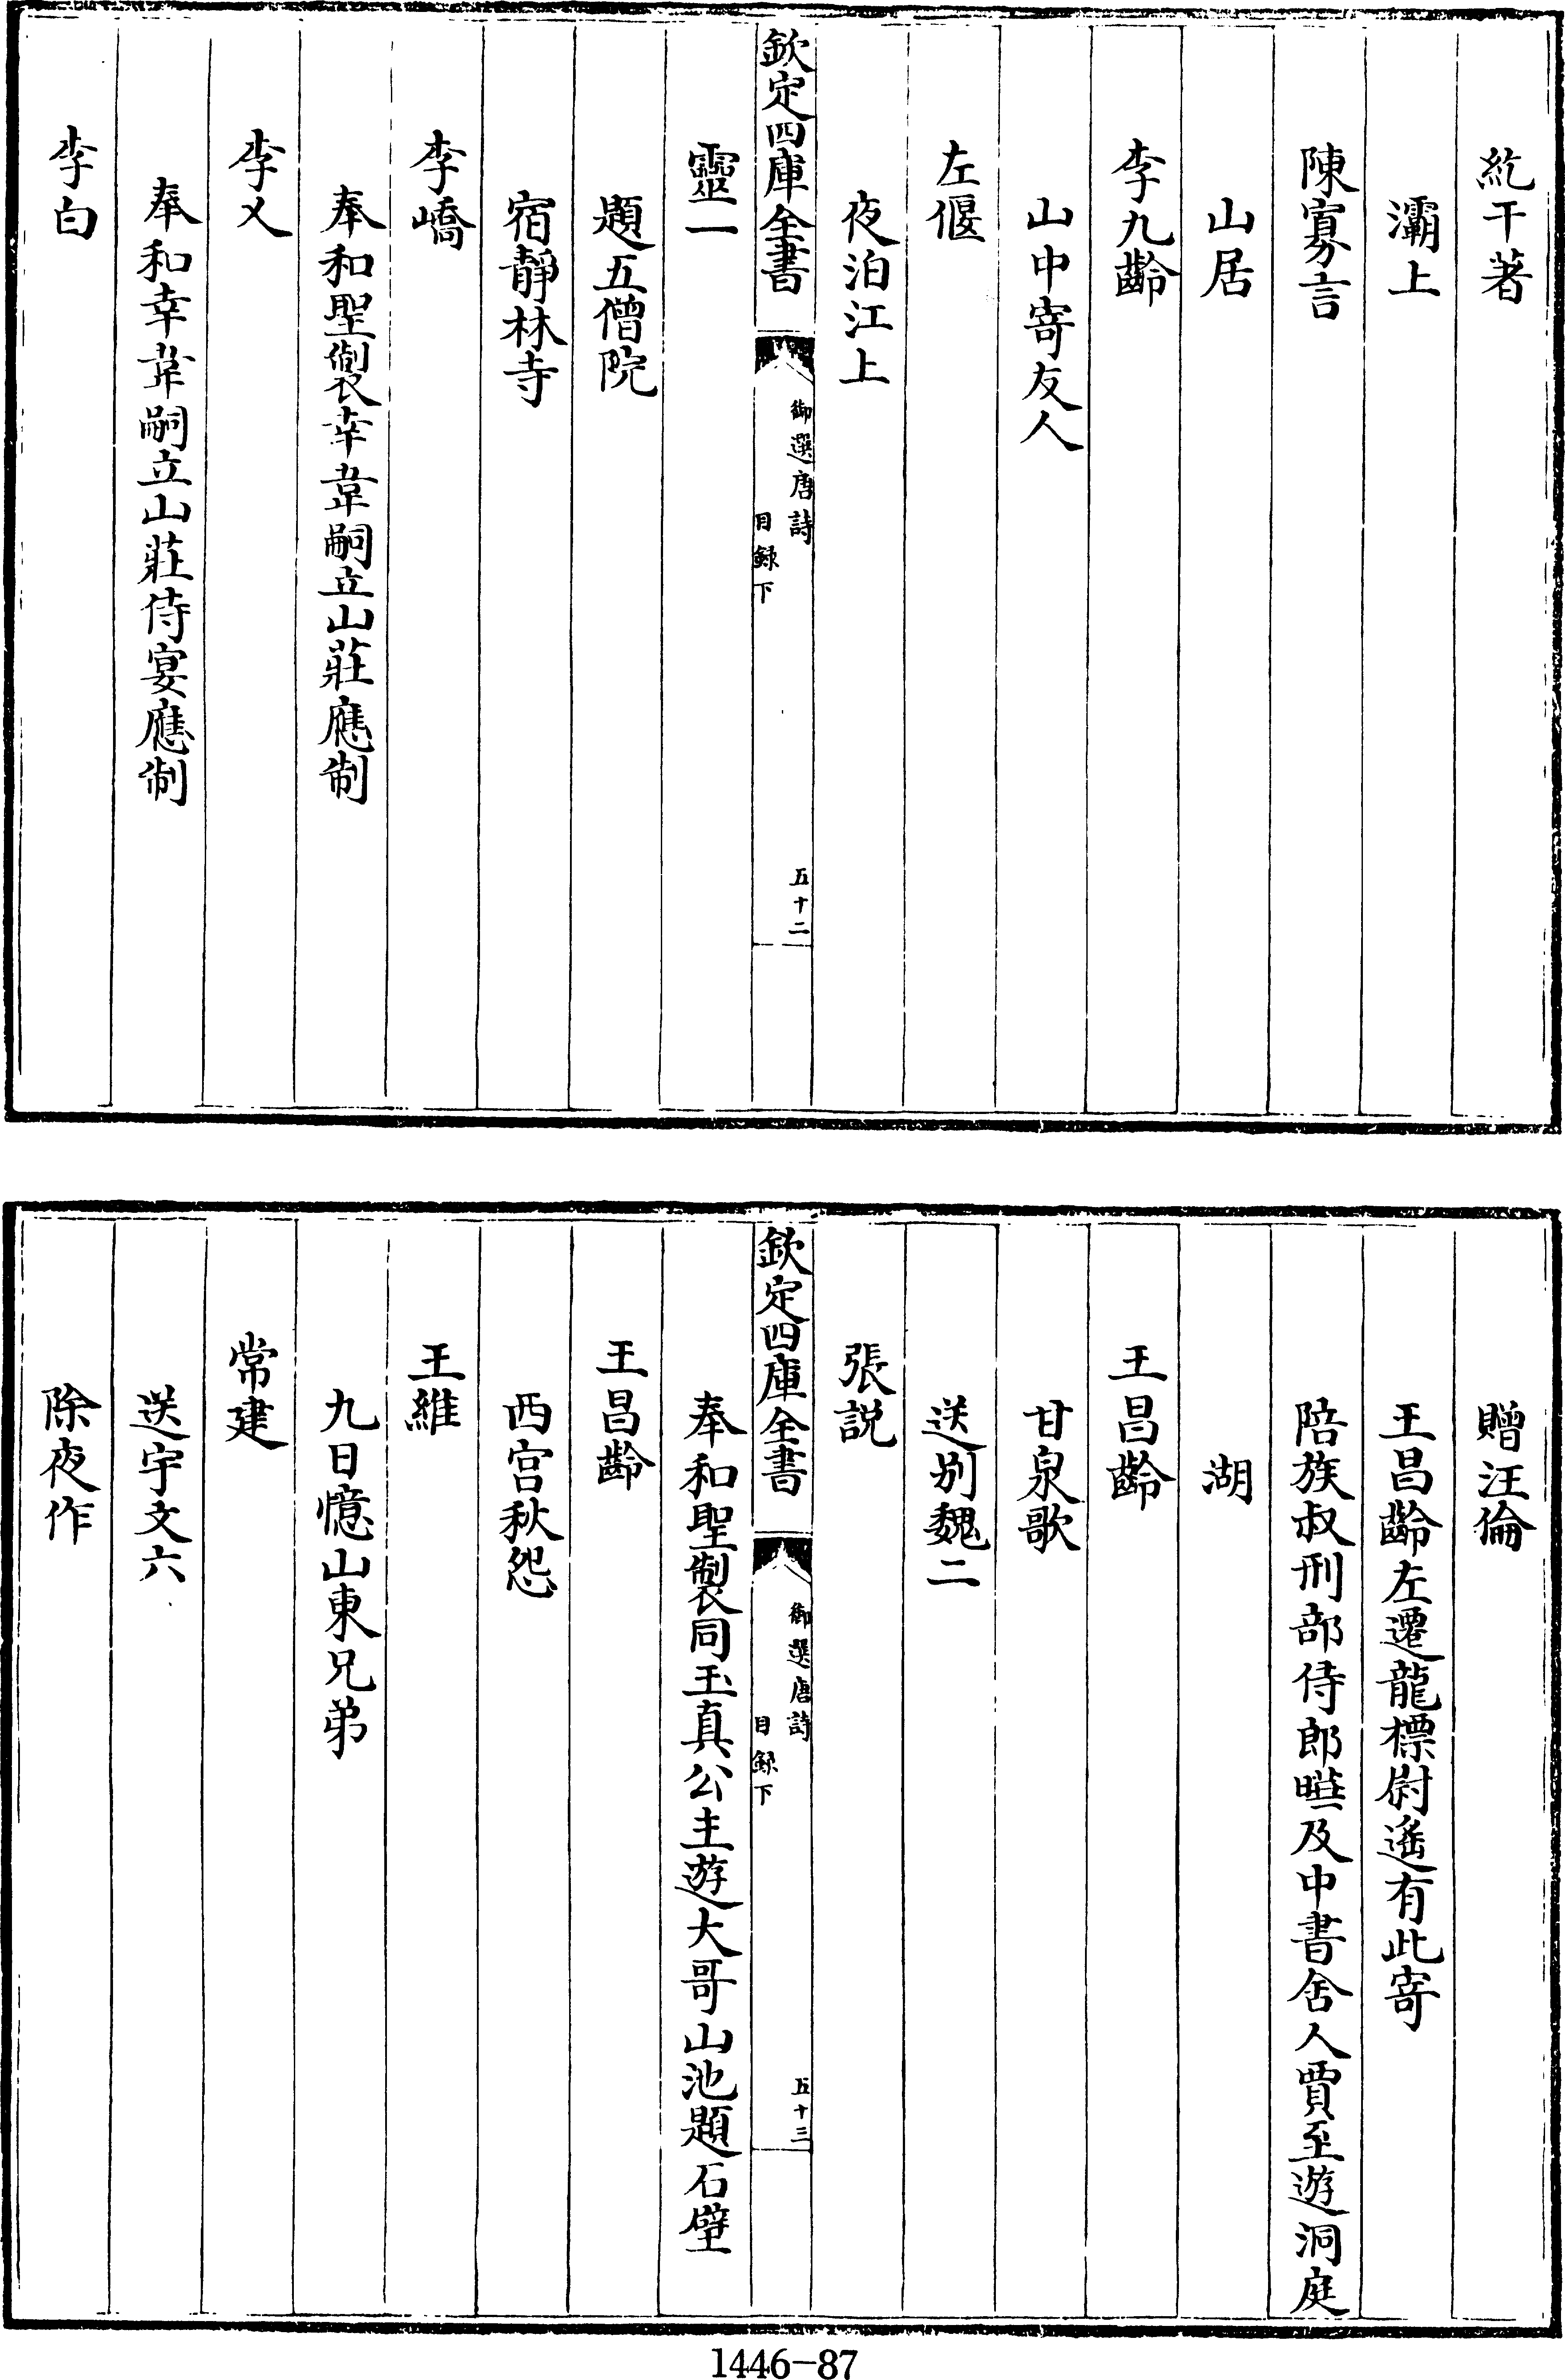 紇干著
灞上
陳寡言
山居
李九齡
山中寄友人
左偃
夜泊江上
欽定四庫全書
御選唐詩
目録下
五十二
靈一
題五僧院
宿靜林寺
李嶠
奉和聖製幸韋嗣立山莊應制
李乂
奉和幸韋嗣立山莊侍宴應制
李白
贈汪倫
王昌齡左遷龍標尉遙有此寄
陪族叔刑部侍郎曄及中書舍人賈至遊洞庭
湖
王昌齡
甘泉歌
送别魏二
張説
欽定四庫全書
御選唐詩
目録下
五十三
奉和聖製同玉真公主遊大哥山池題石壁
王昌齡
西宫秋怨
王維
九日憶山東兄弟
常建
送宇文六
除夜作
1446-87